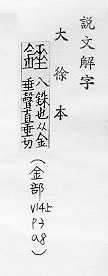 說文解字
大徐本
錘 八銖也从金
垂聲直垂切
(金部
V14上
P3
a8)